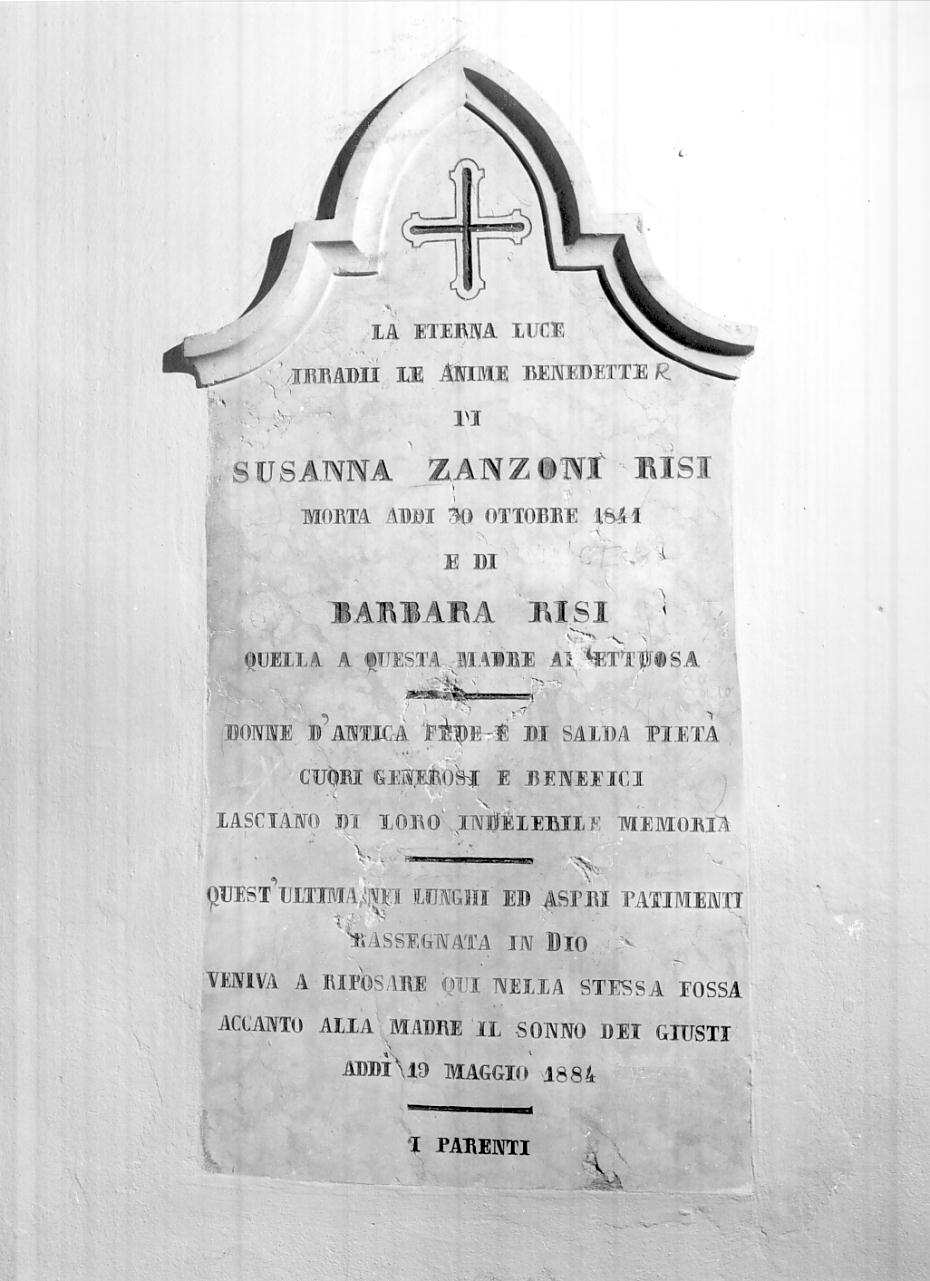 LA ETERNA LUCE
IRRADII LE ANIME BENEDETTE R
DI
SUSANNA ZANZONI RISI
MORTA ADDI 30 OTTOBRE 1841
E DI
BARBARA RISI
QUELLA A QUESTA MADRE AFFETTUOSA
DONNE D'ANTICA FEDE E DI SALDA PIETÀ
CUORI GENEROSI E BENEFICI
LASCIANO DI LORO INDELEBILE MEMORIA
QUEST'ULTIMA NEI LUNGHI ED ASPRI PATIMENTI
RASSEGNATA IN DIO
VENIVA A RIPOSARE QUI NELLA STESSA FOSSA
ACCANTO ALLA MADRE IL SONNO DEI GIUSTI
ADDÌ 19 MAGGIO 1884
I PARENTI